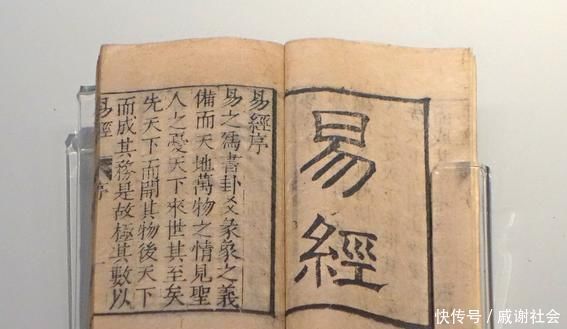 易經
易經序
易之爲書卦爻彖象之義
備而天地萬物之情見聖
人之憂天下來世其至矣
先天下而開其物後天下
而成其務是故極其數以
易經 序
快传号/戚谢社会